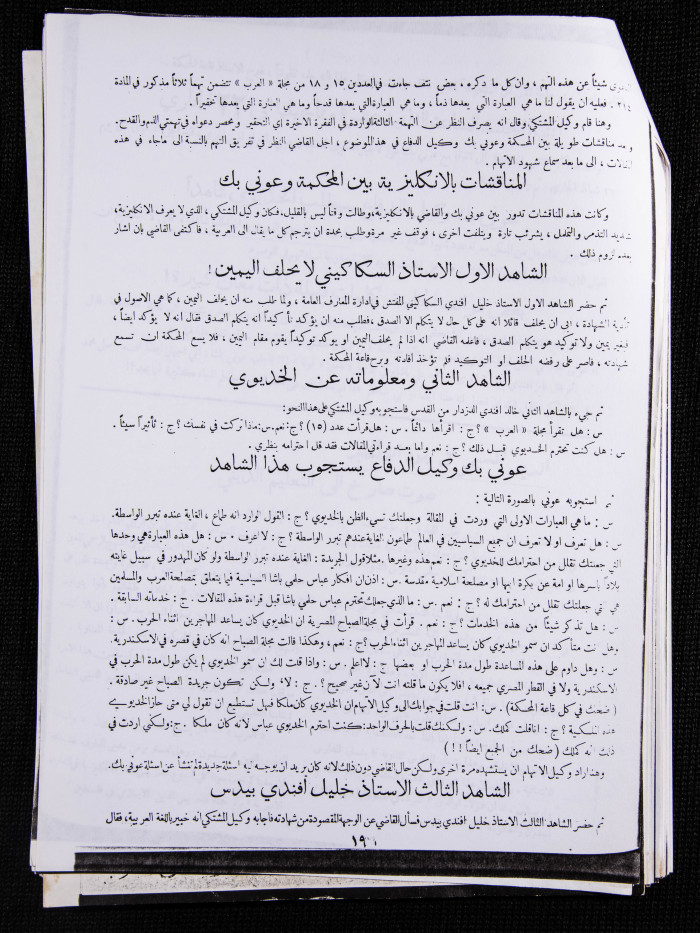 شيئاً عن هذه التهم ، وان كل ما ذكره ، بعض نتف جاءت في العددين ١٥ و ١٨ من مجلة « العرب » تتضمن تهماً ثلاثاً مذكور في المادة
فعليه ان يقول لنا ما هي العبارة التي يعدها ذماً ، وما هي العبارة التي يعدها قدحاً وما هي العبارة التي يعدها تحقيراً .
وهنا قام وكيل المشتكي وقال انه يصرف النظر عن التهمة الثالثة الواردة في الفقرة الاخيرة اي التحقير ويحصر دعواه في تهمتي الذم والقدح.
مناقشات طويلة بين المحكمة وعوني بك وكيل الدفاع في هذا الموضوع ، اجل القاضي النظر في تفريق التهم بالنسبة الى ماجاء في هذه
، الى ما بعد سماع شهود الاتهام .
المناقشات بالانكليزية بين المحكمة وعوني بك
وكانت هذه المناقشات تدور بين عوني بك والقاضي بالانكليزية، وطالت وقتاً ليس بالقليل. فكان وكيل المشتكي ، الذي لا يعرف الانكليزية،
شديد التذمر والتململ ، يشرئب تارة ويتلفت اخرى ، فوقف غير مرة وطلب بحدة ان يترجم كل ما يقال الى العربية ، فاكتفى القاضي بان اشار
بعدم لزوم ذلك .
الشاهد الاول الاستاذ السكاكيني لا يحلف اليمين !
ثم حضر الشاهد الاول الاستاذ خليل افندي السكاكيني المفتش في ادارة المعارف العامة ، ولما طلب منه ان يحلف اليمين ، كما هي الاصول في
تأدية الشهادة ، ابى ان يحلف قائلا انه على كل حال لا يتكلم الا الصدق ، فطلب منه ان يؤكد تأكيداً انه يتكلم الصدق فقال انه لا يؤكد ايضاً ،
فبغير يمين ولا توكيد هو يتكلم الصدق ، فافهمه القاضي انه اذا لم يحلف اليمين او يوكد توكيداً يقوم مقام اليمين ، فلا يسع المحكمة ان تسمع
شهادته ، فاصر على رفضه الحلف او التوكيد فلم تؤخذ افادته وبرح قاعة المحكمة .
الشاهد الثاني ومعلوماته عن الخديوي
ثم جيء بالشاهد الثاني خالد افندي الدزدار من القدس فاستجوبه وكيل المشتكي على هذا النحو:
س : هل تقرأ مجلة « العرب » ؟ ج : اقرأها دائماً . س : هل قرأت عدد (١٥) ؟ ج: نعم. س: ماذا تركت في نفسك ؟ ج : تأثيراً سيئاً .
س : هل كنت تحترم الخديوي قبل ذلك ؟ ج : نعم واما بعد قراءتي المقالات فقد قل احترامه بنظري .
عوني بك وكيل الدفاع يستجوب هذا الشاهد
ثم استجوبه عوني بالصورة التالية :
س : ما هي العبارات الاولى التي وردت في المقالة وجعلتك تسيء الظن بالخديوي ؟ ج : القول الوارد انه طماع ، الغاية عنده تبرر الواسطة.
س : هل تعرف او لا تعرف ان جميع السياسيين في العالم طماعون الغاية عندهم تبرر الواسطة ؟ ج : لا اعرف . س : هل هذه العبارة هي وحدها
التي جعلتك تقلل من احترامك للخديوي ؟ ج : نعم هذه وغيرها . مثلا قول الجريدة : الغاية عنده تبرر الواسطة ولو كان المهدور في سبيل غايته
بلاداً باسرها او امة عن بكرة ابيها او مصلحة اسلامية مقدسة . س : اذن ان افكار عباس حلمي باشا السياسية فيما يتعلق بمصلحة العرب والمسلمين
هي التي جعلتك تقلل من احترامك له ؟ ج : نعم . س : ما الذي جعلك تحترم عباس حلمي باشا قبل قراءة هذه المقالات . ج : خدماته السابقة .
س : هل تذكر شيئاً من هذه الخدمات ؟ ج : نعم . قرأت في مجلة الصباح المصرية ان الخديوي كان يساعد المهاجرين اثناء الحرب . س :
وهل انت متأكد ان سمو الخديوي كان يساعد المهاجرين اثناء الحرب ؟ ج : نعم ، وهكذا قالت مجلة الصباح انه كان في قصره في الاسكندرية.
س : وهل داوم على هذه المساعدة طول مدة الحرب او بعضها ؟ ج : لا اعلم . س : واذا قلت لك ان سمو الخديوي لم يكن طول مدة الحرب في
الاسكندرية ولا في القطر المصري جميعه ، افلا يكون ما قلته انت الآن غير صحيح ؟ . ج : لا، ولكن تكون جريدة الصباح غير صادقة .
( ضحك في كل قاعة المحكمة ) . س : انت قلت في جوابك الى وكيل الاتهام ان الخديوي كان ملكا فهل تستطيع ان تقول لي متى حاز الخديوي
هذه الملكية ؟ ج : انا قلت كملك . س : ولكنك قلت بالحرف الواحد: كنت احترم الخديوي عباس لانه كان ملكا . ج: ولكني اردت في
ذلك انه كملك ( ضحك من الجميع ايضاً ! ! )
وهنا اراد وكيل الاتهام ان يستشهده مرة اخرى ولكن حال القاضي دون ذلك لانه كان يريد ان يوجه اليه اسئلة جديدة لم تنشأ عن اسئلة عوني بك.
الشاهد الثالث الاستاذ خليل أفندي بيدس
ثم حضر الشاهد الثالث الاستاذ خليل افندي بيدس فسأل القاضي عن الوجهة المقصودة من شهادته فاجابه وكيل المشتكي انه خبير باللغة العربية، فقال
١٩